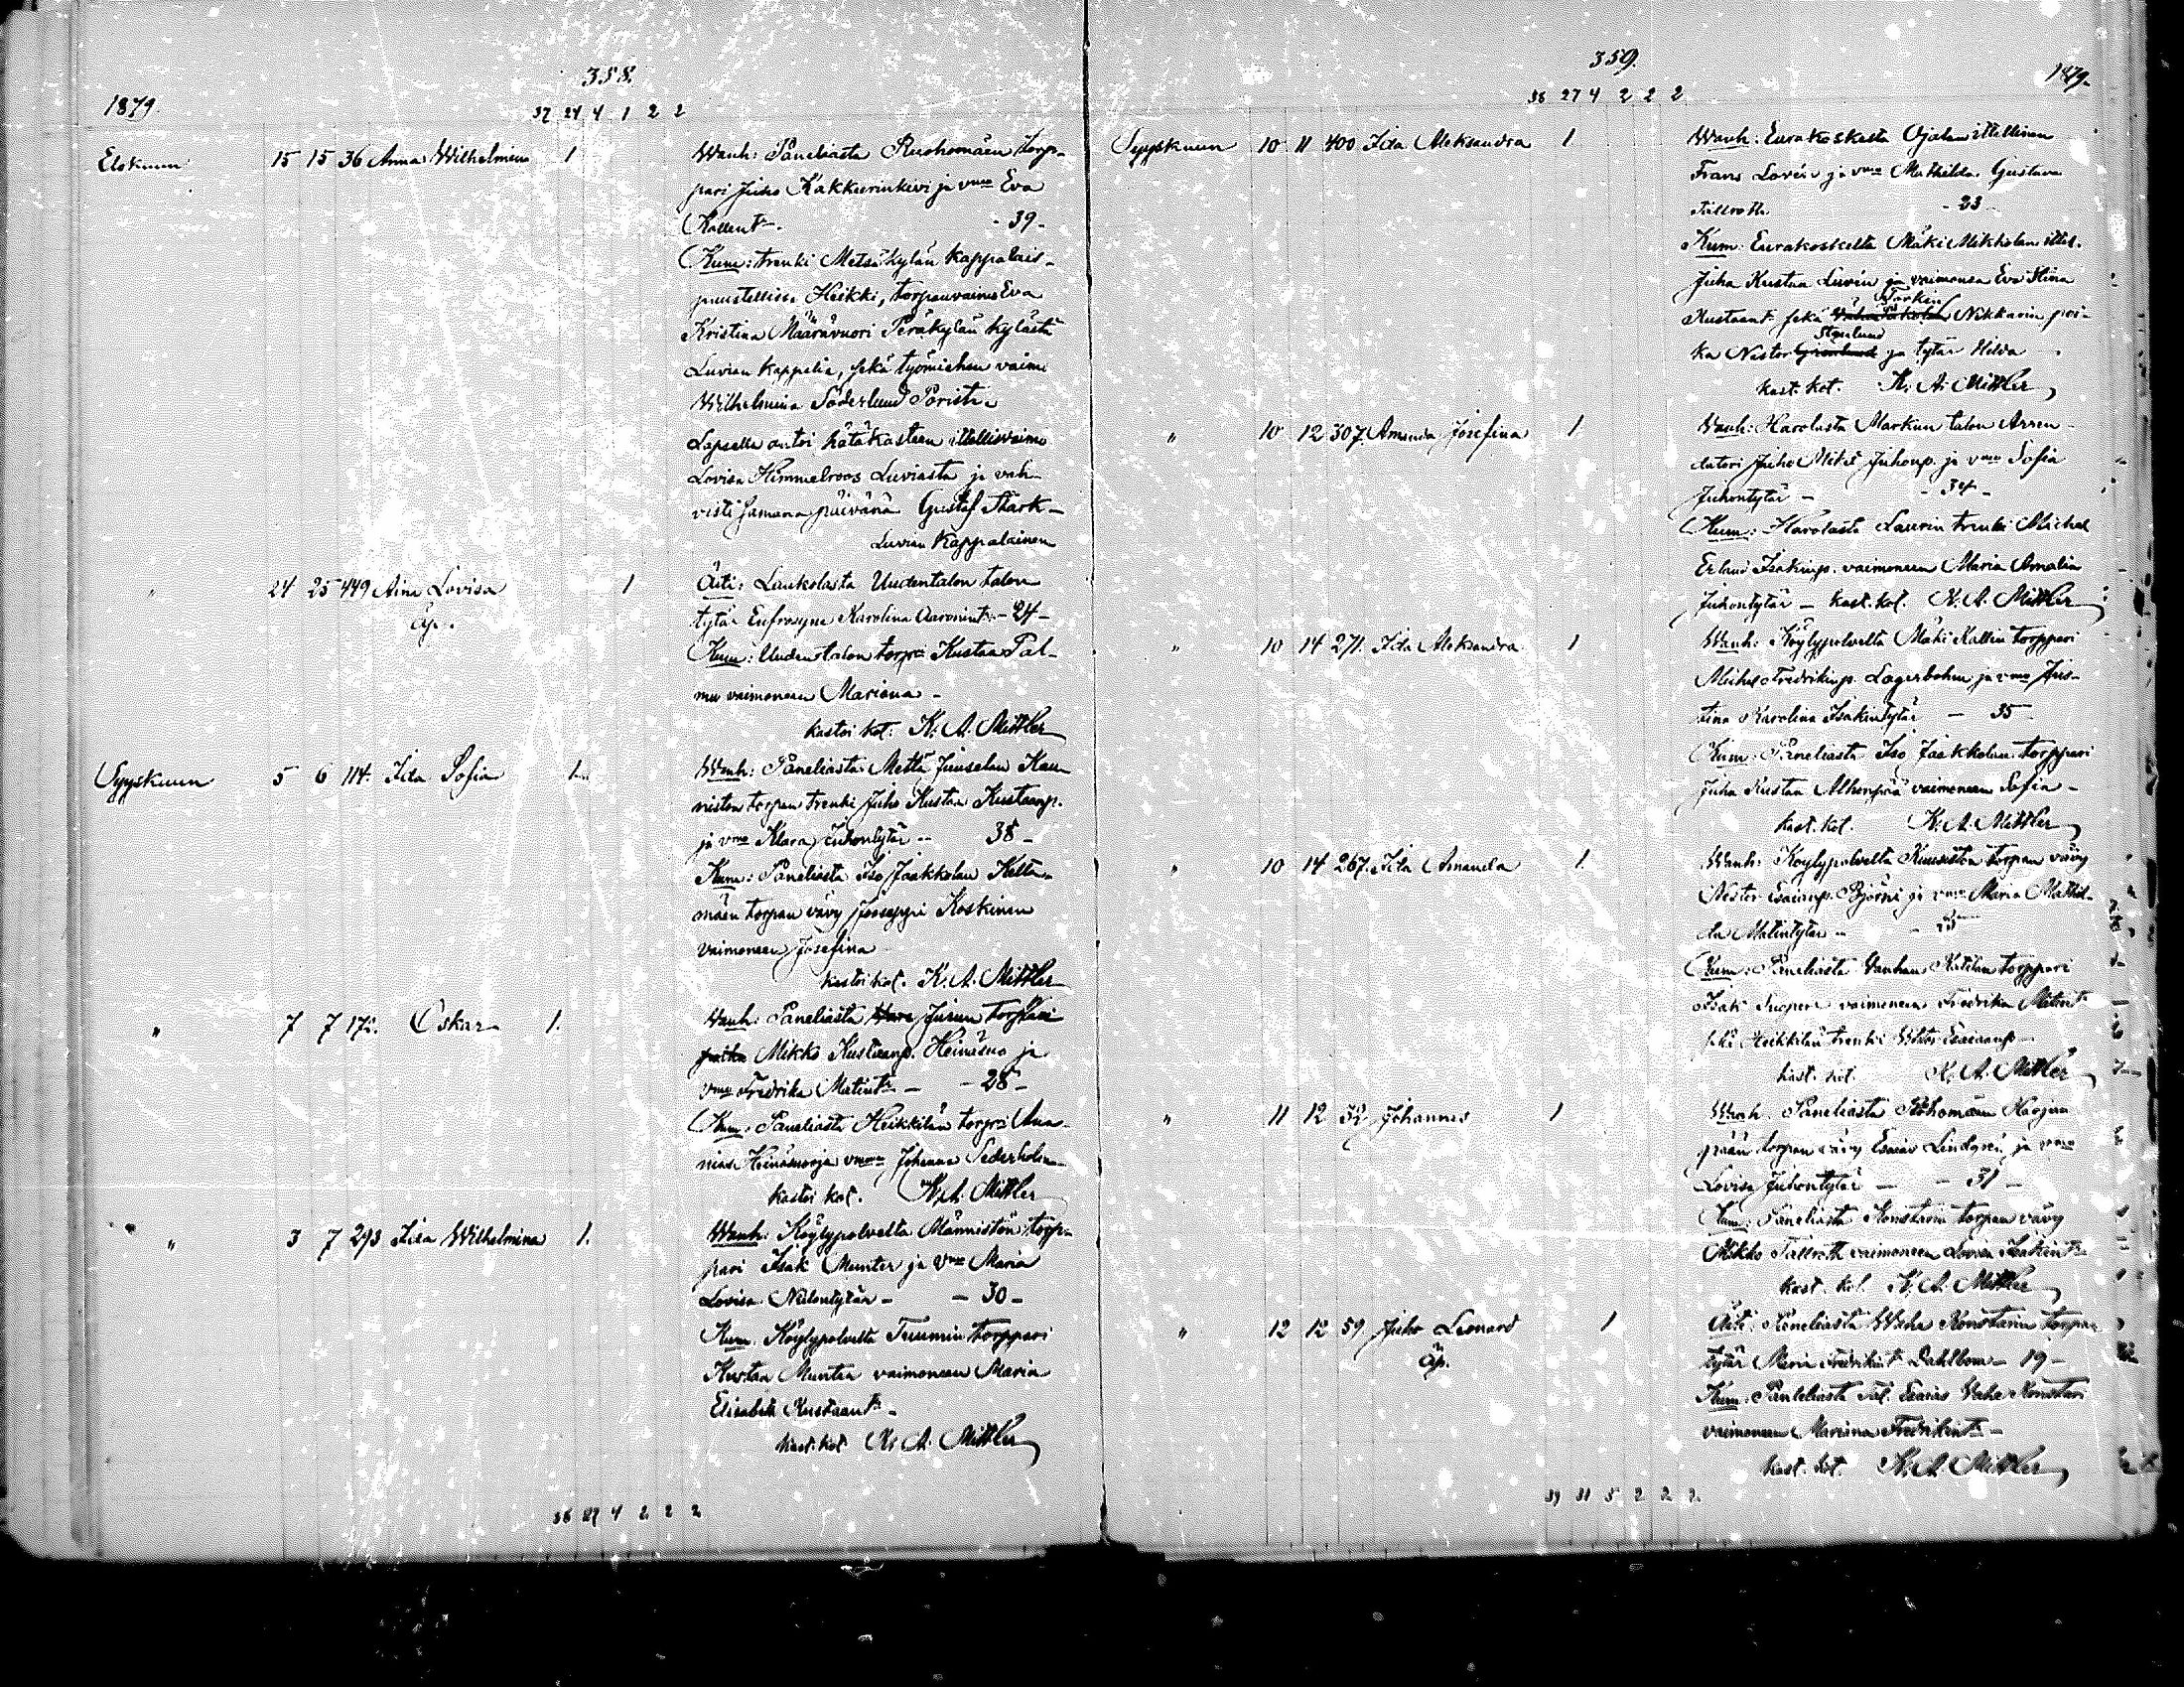 358.
1879.
37 24 4 1 2 2
Elokuun 15 15 36 Anna Wilhelmina 1 Wanh: Paneliasta Ruohomäen torp-
pari Juho Kakkurinkivi ja vmo Eva
Kallent. - 39 -
Kum: trenki Metsäkylän kappalais-
puustellissa Heikki, torpanvaimo Eva
Kristina Määrävuori Peräkylän kylästä
Luvian kappelia, sekä työmiehen vaimo
Wilhelmina Söderlund Porista.
Lapselle antoi hätäkasteen itellisvaimo
Lovisa Himmelroos Luviasta ja vah-
visti samana päivänä Gustaf Stark -
Luvian Kappalainen
" 24 25 449 Aina Lovisa 1 Äiti: Laukolasta Uudentalon talon
Äp. tytär Eufrosyne Karolina Aaronint. - 24 -
Kum: Uudentalon torpri Kustaa Pal-
mu vaimoneen Mariana -
kastoi kot. K. A. Mittler
Syyskuun 5 6 114. Ida Sofia 1. Wanh: Paneliasta Mettä Juuselan Kau-
niston torpan trenki Juho Kustaa Kustaanp.
ja vmo Klara Juhontytär - 38 -
Kum: Paneliasta Iso Jaakkolan Kelta-
mäen torpan vävy Jooseppi Koskinen
vaimoneen Josefina
kastoi kot. K. A. Mittler
" 7 7 172. Oskar 1. Wanh: Paneliasta Juusen torppari
Mikko Kustaanp. Heinäsuo ja
vmo Fredrika Matint. - - 28 -
Kum: Paneliasta Heikkilän torpri Ana-
nias Heinäsuo ja vmo Johanna Sederholm
kastoi kot. K. A. Mittler
" 3 7 293 Ida Wilhelmina 1. Wanh: Köylypolvelta Männistön torp-
pari Isak Munter ja vmo Maria
Lovisa Niilontytär - - 30 -
Kum. Köylypolvelta Tuumin torppari
Kustaa Munter vaimoneen Maria
Elisabet Kustaant. -
kast. kot. K. A. Mittler
38 27 4 2 2 2
359.
1879.
38 27 4 2 2 2
Syyskuun 10 11 400 Ida Aleksandra 1 Wanh: Eurakoskelta Ojalan itellinen
Frans Lovén ja vmo Mathilda Gustava
Tallroth - 23 -
Kum: Eurakoskelta Mäki Mikkolan itel.
Juha Kustaa Lovén ja vaimonsa Eva Stina
Kustaant. sekä Nikkarin poi-
ka Nestor Stenlund ja tytär Hilda -
kast. kot. K. A. Mittler
" 10 12 307. Amanda Josefina 1 Wanh: Harolasta Markun talon Arren-
datori Juho Mikä Juhonp. ja vmo Sofia
Juhontytär - - 34 -
Kum: Harolasta Laurin trenki Michel
Erland Isakinp. vaimoneen Maria Amalia
Juhontytär - kast. kot. K. A. Mittler
" 10 14 271. Ida Aleksandra 1 Wanh: Köylypolvelta Mäki Kallin torppari
Michel Fredrikinp. Lagerbohm ja vmo Jus-
tina Karolina Isakintytär - 35 -
Kum: Paneliasta Iso Jaakkolan torppari
Juha Kustaa Alhonpää vaimoneen Sofia -
kast. kot. K. A. Mittler
" 10 14 267. Ida Amanda 1. Wanh: Köylypolvelta Kuusiston torpan vävy
Nestor Esaianp. Björni ja vmo Maria Mathil-
da Matintytär -
Kum: Paneliasta Vanhan Katilan torppari
Isak vaimoneen Fredrika Matint.
sekä Heikkilän trenki Viktor Esaianp -
kast. kot. K. A. Mittler
" 11 12 32 Johannes 1 Wanh. Paneliasta Ruohomäen Harjun
pään torpan vävy Esaias Lindgren ja vmo
Lovisa Juhontytär - - 31 -
Kum: Paneliasta Konstarin torpan vävy
Mikko Tallroth vaimoneen Lovisa Isakint.
kast. kot. K. A. Mittler
" 12 12 59 Juho Leonard 1 Äiti: Paneliasta Waha Konstarin torpan
Äp. tytär Maria Fredrikint. Dahlbom - 19 -
Kum: Paneliasta tal. Esaias Vaha Konstari
vaimoneen Mariana Fredrikint. -
kast. kot. K. A. Mittler
39 31 5 2 2 2